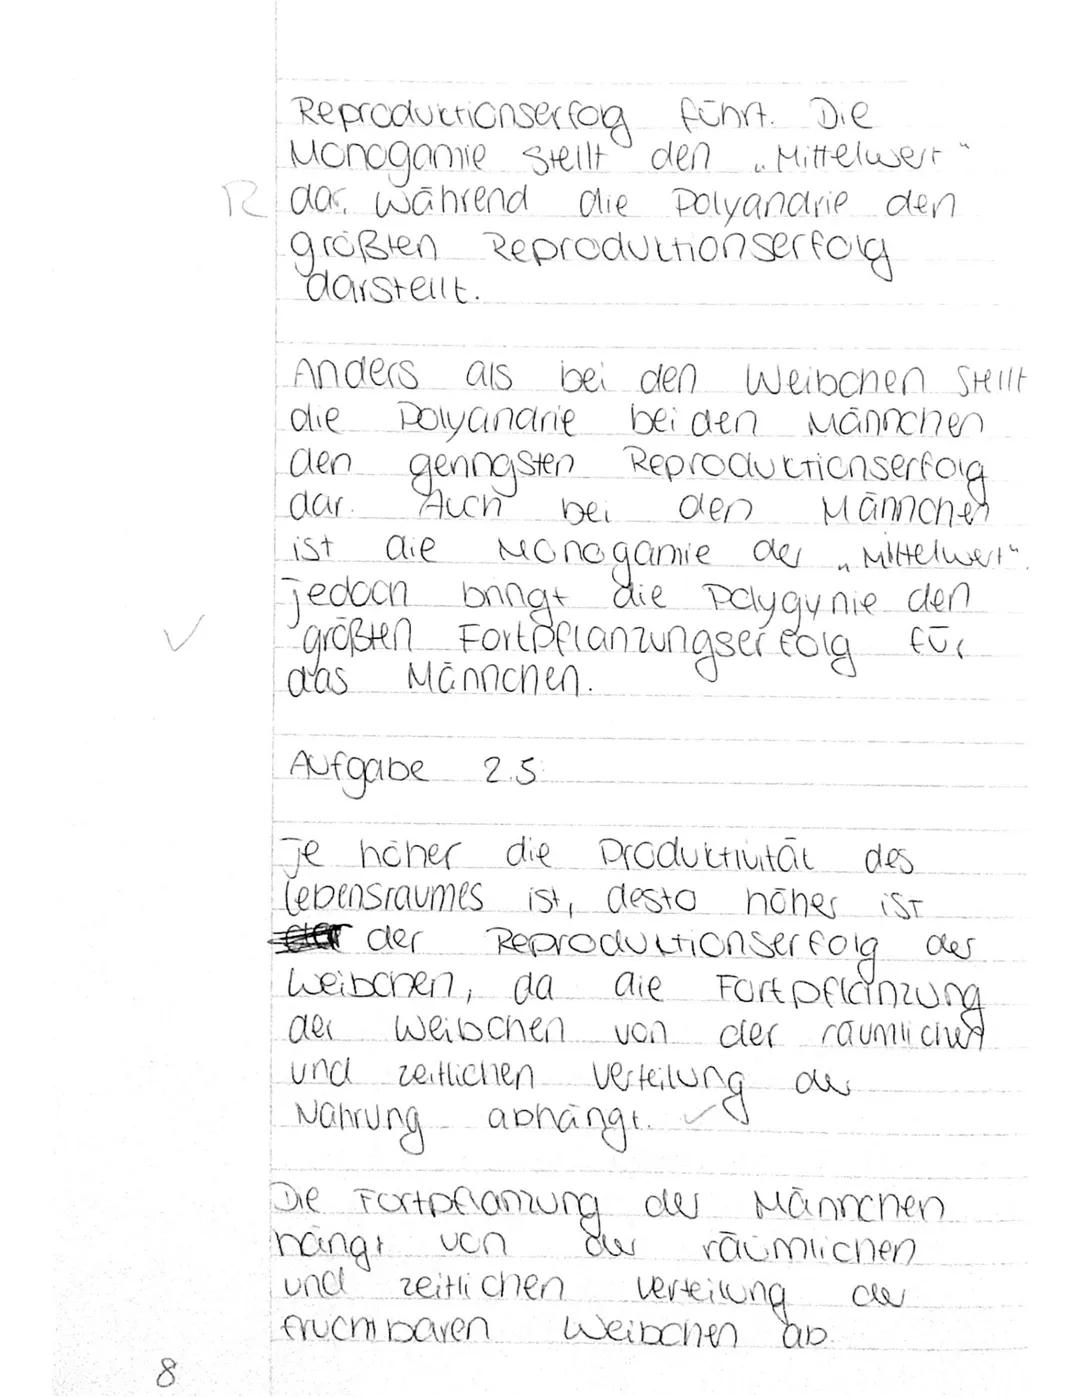 Reproduktionserfolg führt. Die
Monogamie stellt den „Mittelwert"
R dar, während die Polyandrie den
größten Reproduktionserfolg
darstellt.
Anders als bei den Weibchen stellt
die Polyandrie bei den Männchen
den geringsten Reproduktionserfolg
dar. Auch bei den Männchen
ist die Monogamie der „Mittelwert".
Jedoch bringt die Polygynie den
✓ größten Fortpflanzungserfolg für
das Männchen.
Aufgabe 2.5:
Je höher die Produktivität des
Lebensraumes ist, desto höher ist
der Reproduktionserfolg der
Weibchen, da die Fortpflanzung
der Weibchen von der räumlichen
und zeitlichen Verteilung der
Nahrung abhängt. ✓
Die Fortpflanzung der Männchen
hängt von der räumlichen
und zeitlichen Verteilung der
fruchtbaren Weibchen ab.
8